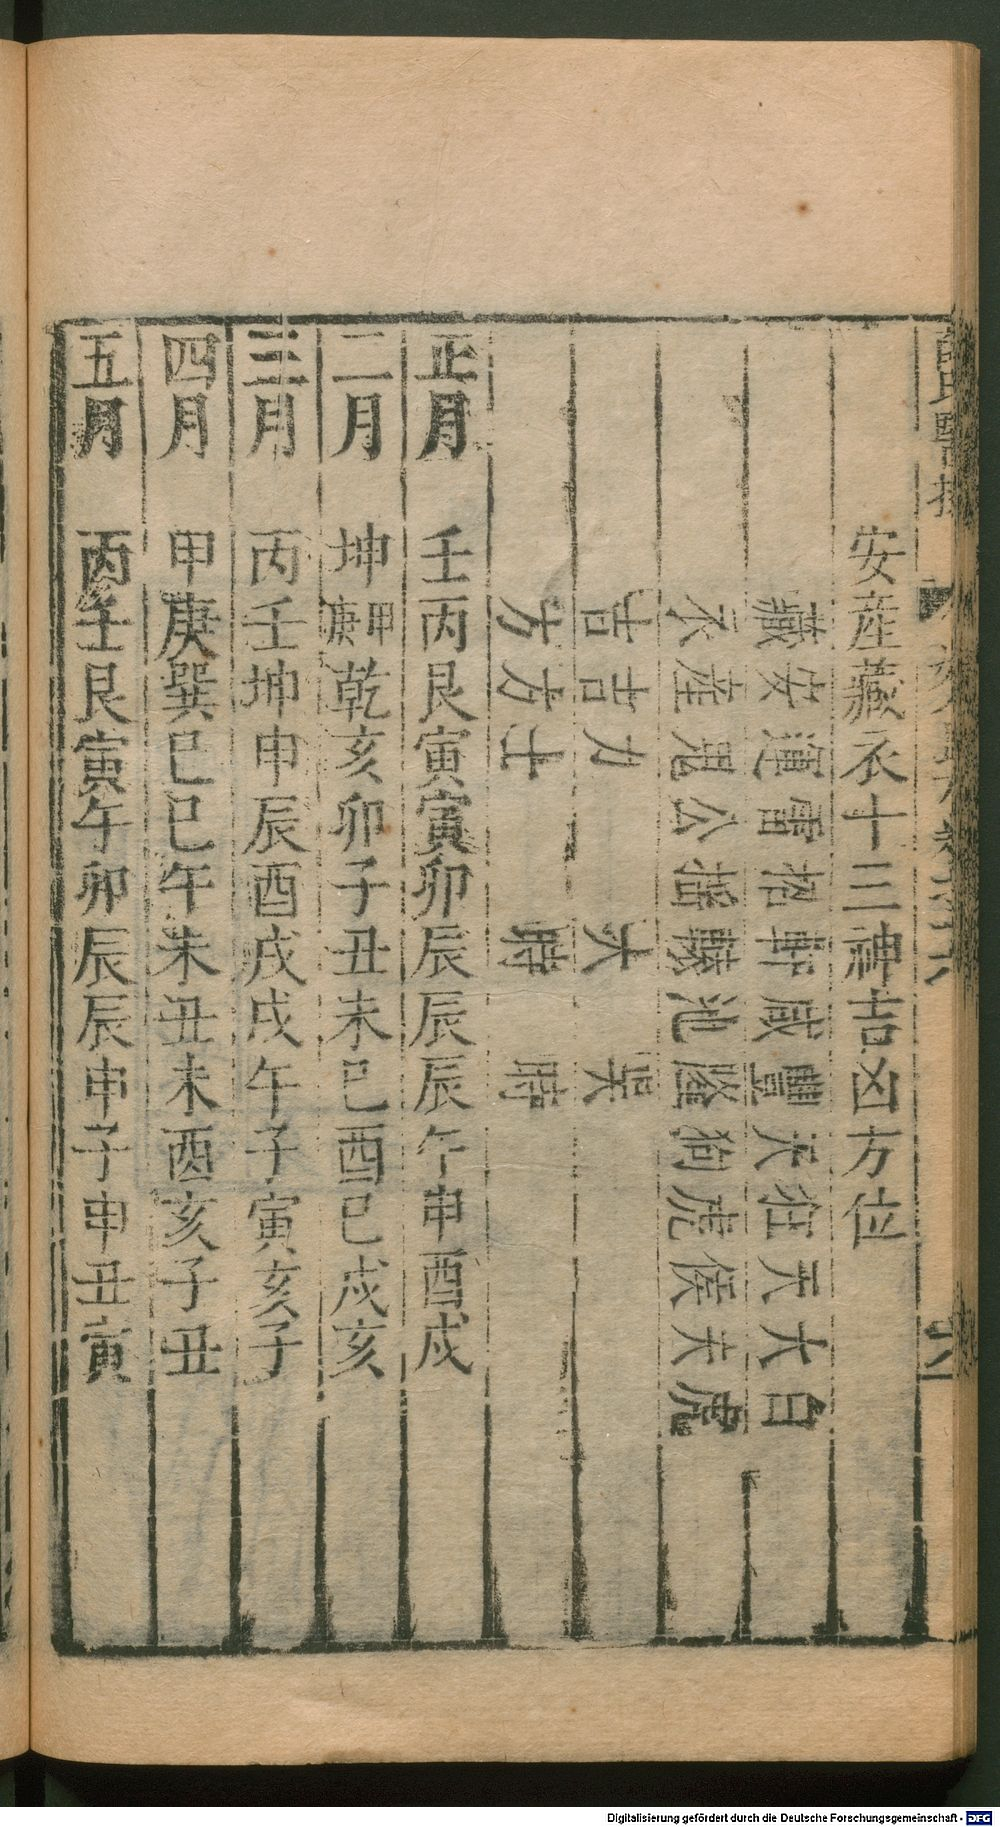 氏醫按
安産藏衣十三神吉凶方位
藏衣吉方
安産吉方
運鬼力士
雷公
招搖
軒轅大時
咸池
豐隆吳時
天狗
狂虎
天侯
大夫
白虎
正月 壬丙艮寅寅卯辰辰辰午申酉戌
二月 坤甲庚乾亥卯子丑未巳酉巳戌亥
三月 丙壬坤申辰酉戌戌午子寅亥子
四月 甲庚巽巳巳午未丑未酉亥子丑
五月 丙壬艮寅午卯辰辰申子申丑寅
Digitalisierung gefördert durch die Deutsche Forschungsgemeinschaft - DFG